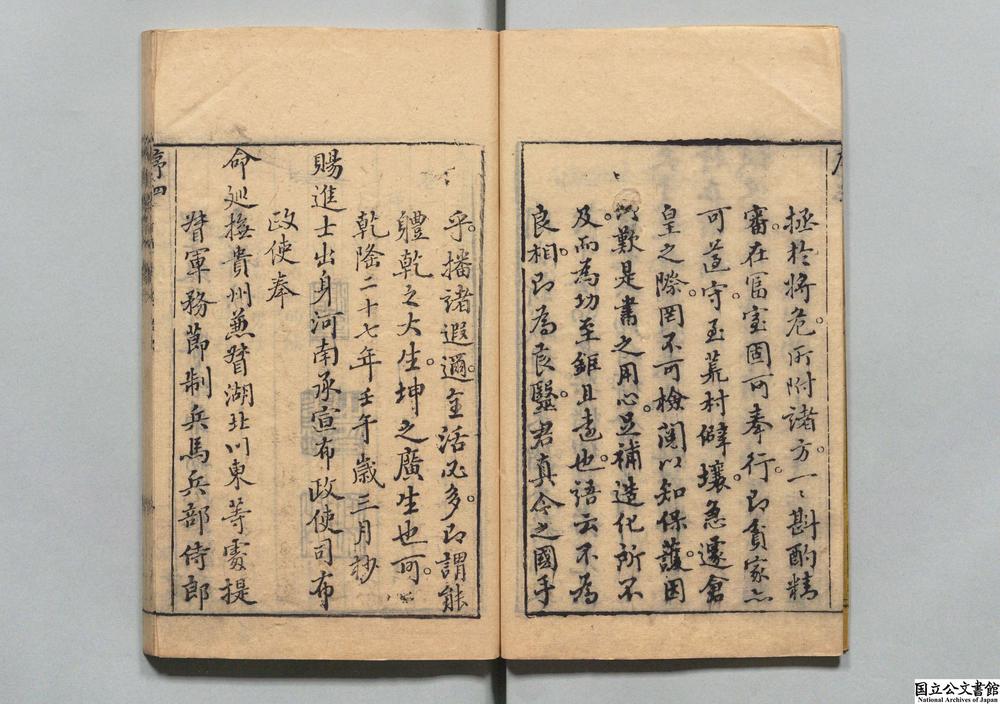 拯於將危。所附諸方。一〻斟酌精
審。在富室固可奉行。即貧家亦
可遵守。至荒村僻壤。急遽倉
皇之際。罔不可檢閱以知保護。因
以歎是書之用心。足補造化所不
及。而為功至鉅且遠也。語云不為
良相。即為良醫。君真今之國手
乎。播諸遐邇。全活必多。即謂能
體乾之大生。坤之廣生也可。
乾隆二十七年壬午歲三月抄
賜進士出身河南承宣布政使司布
政使奉
命廵撫貴州兼督湖北川東等處提
督軍務節制兵馬兵部侍郎
序四
国立公文書館
National Archives of Japan